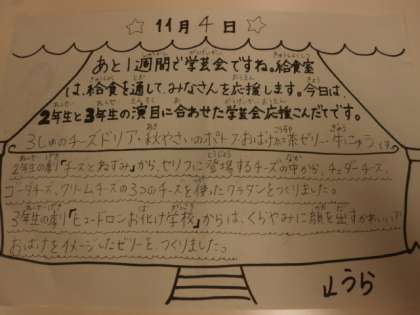 ☆ 11月4日 ☆
あと1週間で学芸会ですね。給食室
は、給食を通して、みなさんを応援します。今日は、
2年生と3年生の演目に合わせた学芸会応援こんだてです。
3しゅのチーズドリア・秋やさいのポトフ・おばけか茶ゼリー・牛にゅう
2年生の劇「チーズとねずみ」から、セリフに登場するチーズの中から、チェダーチーズ、
ゴーダチーズ、クリームチーズの3つのチーズを使ったグラタンをつくりました。
3年生の劇「ヒュードロンお化け学校」からは、くらやみに顔を出すかわいい
おばけをイメージしたゼリーを、つくりました。
↓うら